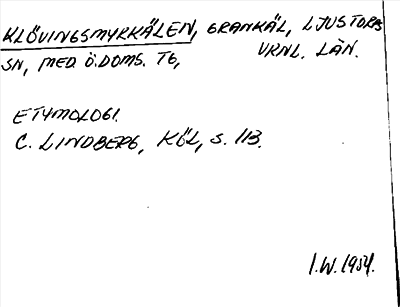 KLÖVINGSMYRKÄLEN, GRANKÄL, LJUSTORPS
SN, MED. Ö. DOMS. TG, VRNL. LÄN.
ETYMOLOGI.
C. LINDBERG, KÖL, S. 113.
I.W. 1984.